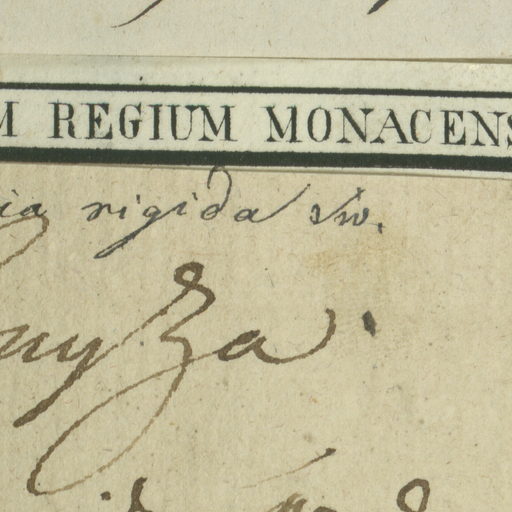 M REGIUM MONACENS
ia rigida Sw.
nyza